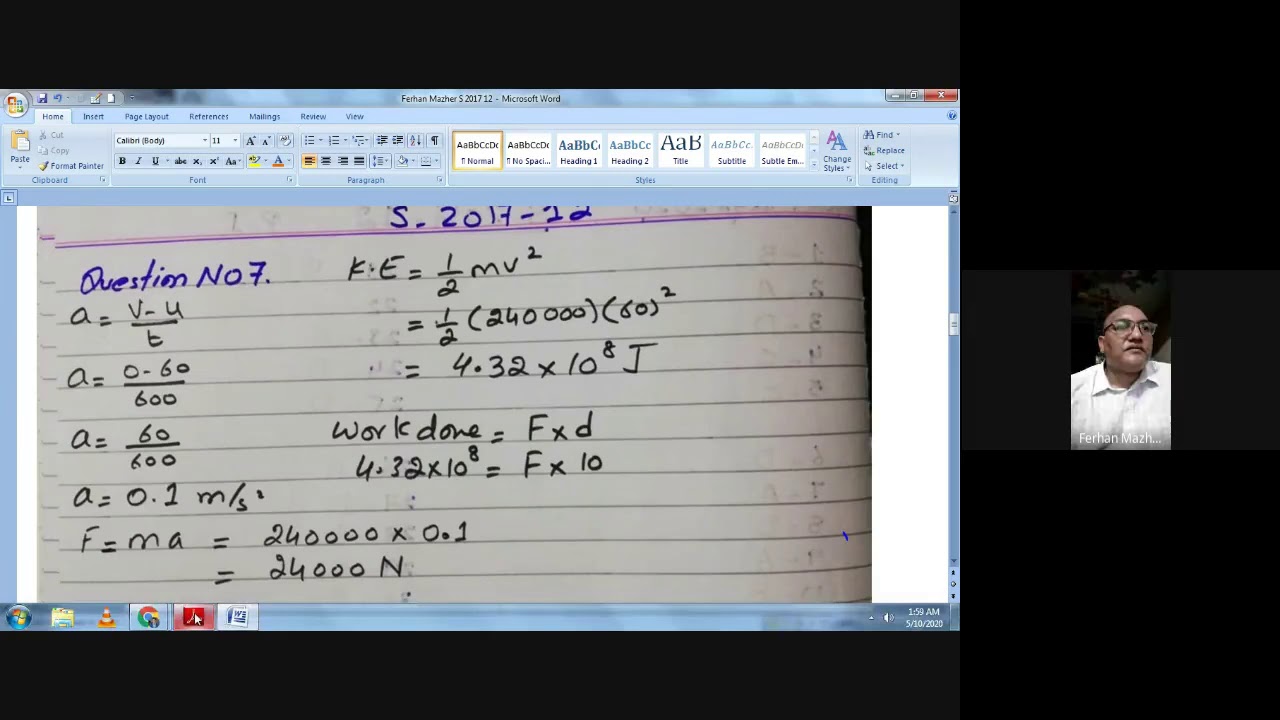 Ferhan Mazher S 2017 12 - Microsoft Word
Home Insert Page Layout References Mailings Review View
Cut
Copy
Format Painter
Paste
Calibri (Body) 11
AaBbCcDc AaBbCcDc AaBbCc AaBbCc AaB AaBbCc. AaBbCcDc
¶ Normal ¶ No Spaci... Heading 1 Heading 2 Title Subtitle Subtle Em...
Change Styles
Find
Replace
Select
Clipboard Font Paragraph Styles Editing
S-2017-12
Question No 7.
a = v-u/t
a = 0-60/600
a = 60/600
a = 0.1 m/s²
F = ma = 240000 × 0.1
= 24000 N
K.E = 1/2 mv²
= 1/2 (240000)(60)²
= 4.32 × 10⁸ J
Work done = F × d
4.32×10⁸ = F × 10
Ferhan Mazh...
1:59 AM
5/10/2020